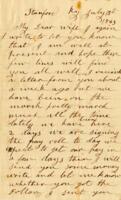 Stanford Ky July 18th
1863
My Dear wife I again
write to let you know
that I am well at
present and hope these
few lines will find
you all well I received
a letter from you about
a week ago but we
have been on the
march pretty much
all the time
lately we have been here
2 days we are signing
the pay roll to day we
will get our pay in
a few days then I will
send you some money
write and let me know
whether you got the
dollars I sent you